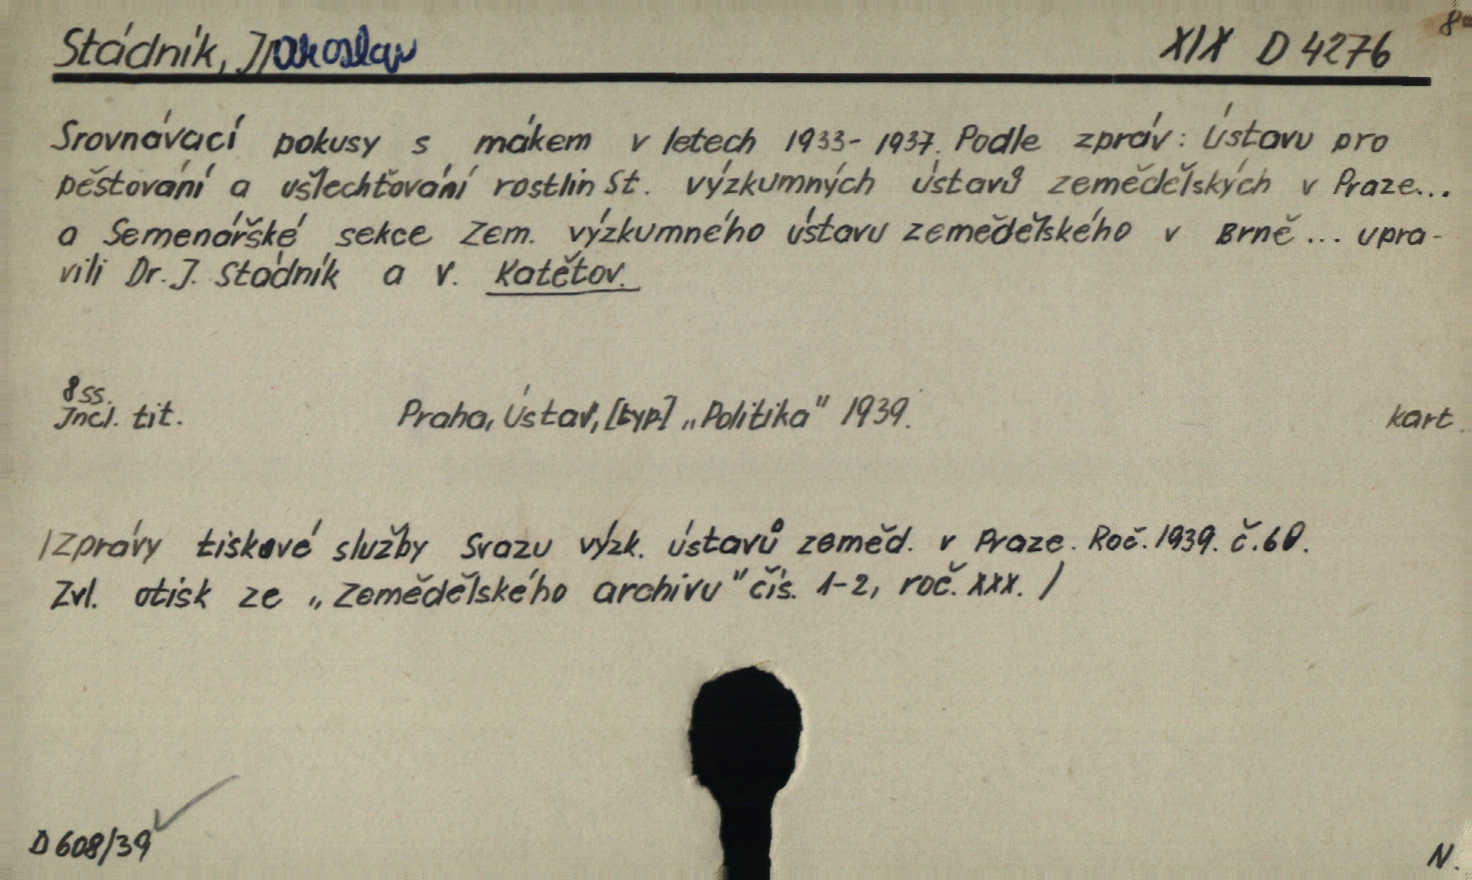 Stádník, Jaroslav XIX D 4276 8°
Srovnávací pokusy s mákem v letech 1933-1937. Podle zpráv: Ústavu pro
pěstování a ušlechťování rostlin St. výzkumných ústavů zemědělských v Praze...
a Semenářské sekce Zem. výzkumného ústavu zemědělského v Brně... upra-
vili Dr. J. Stádník a V. Katětov.
8 ss.
Incl. tit. Praha, Ústav, [typ.] „Politika" 1939. kart.
/Zprávy tiskové služby Svazu výzk. ústavů zeměd. v Praze. Roč. 1939. č. 60.
Zvl. otisk ze „Zemědělského archivu" čís. 1-2, roč. XXX. /
D 608/39
N.